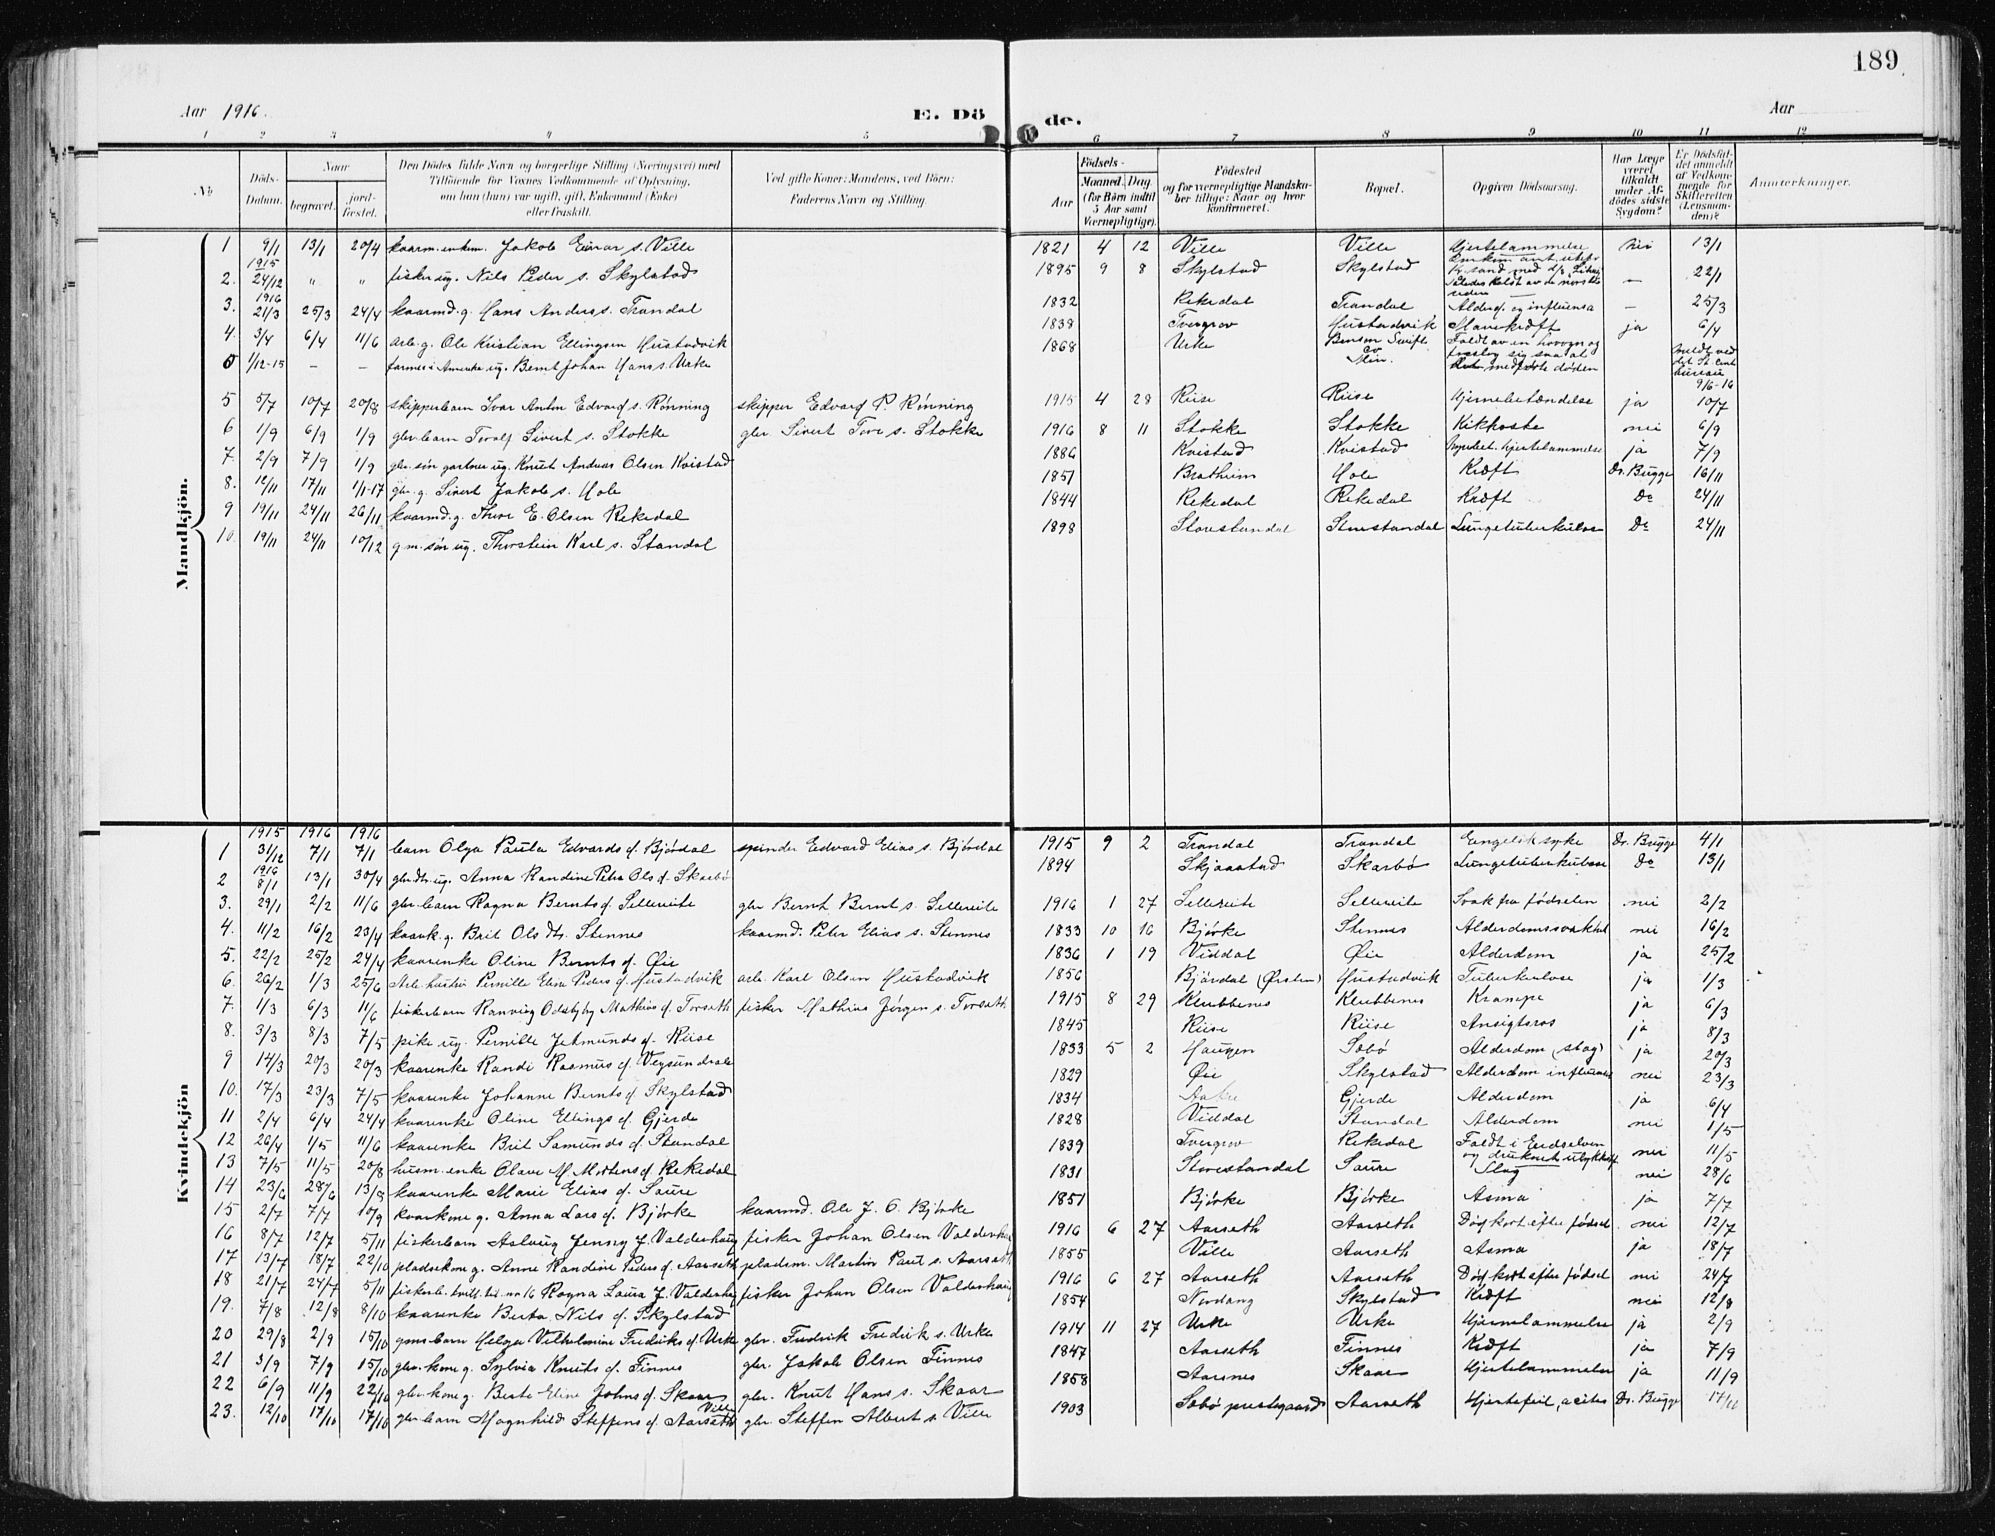 189
Aar 1916. E. Dö de. Aar
1 2 3 4 5 6 7 8 9 10 11 12
No Döds-Datum. Naar begravet. jord-fæstet. Den Dödes fulde Navn og borgerlige Stilling (Næringsvei) med Tilföiende for Voxnes Vedkommende af Oplysning, om han (hun) var ugift, gift, Enkemand (Enke) eller fraskilt. Ved gifte Koner: Mandens, ved Börn: Faderens Navn og Stilling. Födsels- Aar Maaned. Dag (for Börn indtil 5 Aar samt Værnepligtige). Födested og for værnepligtige Mandskaber tillige: Naar og hvor konfirmeret. Bopæl. Opgiven Dödsaarsag. Har Læge været tilkaldt under Afdödes sidste Sygdom? Er Dödsfaldet anmeldt af Vedkommende for Skifteretten (Lensmanden)? Anmærkninger.
Mandkjön.
1 9/1 13/1 20/4 kaarm. enkm. Jakob Einar s. Ville 1821 4 12 Ville Ville Hjertelammelse nei 13/1
2. 1915 24/12 " " fisker ug. Nils Peder s. Skylstad 1895 9 8 Skylstad Skylstad — 22/1
3. 1916 21/3 25/3 24/4 kaarmd. g. Hans Anders s. Trandal 1832 Rekedal Trandal Alderd. og influensa — 25/3
4. 3/4 6/4 11/6 arb. g. Ole Kristian Ellingsen Hustadvik 1838 Tvergrov Hustadvik Mavekræft ja 6/4
0 1/12-15 — — farmer i Amerika ug. Bernt Johan Hans s. Urke 1868 Urke Benson Swift co Min. Faldt av en høvogn og slog sig saa at medførte døden 9/6-16
5 5/7 10/7 20/8 skipperbarn Ivar Anton Edvard s. Rønning skipper Edvard P. Rønning 1915 4 28 Riise Riise Hjernebetændelse ja 10/7
6 1/9 6/9 1/9 gbr. barn Toralf Sivert s. Stokke gbr. Sivert Tore s. Stokke 1916 8 11 Stokke Stokke Kikhoste nei 6/9
7. 2/9 7/9 1/9 gbr. søn gartner ug. Knut Andreas Olsen Kvistad 1886 Kvistad Kvistad Hjertelammelse ja 7/9
8. 12/11 17/11 1/1-17 gbr. g. Sivert Jakob s. Hole 1851 Bratheim Hole Kræft Dr. Bugge 16/11
9 19/11 24/11 26/11 kaarmd. g. Thore E. Olsen Rekedal 1844 Rekedal Rekedal Kræft Do 24/11
10. 19/11 24/11 10/12 g.m. søn ug. Thorstein Karl s. Standal 1898 Storestandal Storestandal Lungetuberkulose Do 24/11
Kvindekjön
1 1915 31/12 1916 7/1 1916 7/1 barn Olga Paula Edvards d. Bjørdal spinder Edvard Elias s. Bjørdal 1915 9 2 Trandal Trandal Engelsk syke Dr. Bugge 4/1
2 1916 8/1 13/1 30/4 gbr. dtr. ug. Anna Randine Petra Ols d. Skarbø 1894 Skjaastad Skarbø Lungetuberkulose Do 13/1
3. 29/1 2/2 11/6 gbr. barn Ragna Bernts d. Sellereite gbr Bernt Bernt s. Sellereite 1916 1 27 Sellereite Sellereite Svak fra fødselen nei 2/2
4. 11/2 16/2 23/4 kaark. g. Brit Ols dtr. Stennes kaarmd. Peter Elias s. Stennes 1833 10 16 Bjørke Stennes Alderdomssvakhet nei 16/2
5. 22/2 25/2 24/4 kaarenke Oline Bernts d. Øie 1836 1 19 Viddal Øie Alderdom ja 25/2
6. 26/2 1/3 25/6 Arb. hustru Pernille Elina Peders d. Hustadvik arb. Karl Olsen Hustadvik 1856 Bjørdal (Ørsten) Hustadvik Tuberkulose ja 1/3
7. 1/3 6/3 11/6 fiskerbarn Ranveig Odsbjby Mathias d. Forsæth fisker Mathias Jørgen s. Forsæth 1915 8 29 Klubbenes Klubbenes Krampe ja 6/3
8. 3/3 8/3 7/5 pike ug. Pernille Jetmunds d. Riise 1845 Riise Riise Ansigtsros ja 8/3
9 14/3 20/3 20/3 kaarenke Randi Rasmus d. Vegsundsale 1833 5 2 Haugen Sæbø Alderdom (slag) ja 20/3
10. 17/3 23/3 7/5 kaarenke Johanne Bernts d. Skylstad 1829 Øie Skylstad Alderdom influensa nei 23/3
11 2/4 6/4 24/4 kaarenke Oline Ellings d. Gjerde 1834 Gjerde Alderdom ja 6/4
12 26/4 1/5 11/6 kaarenke Brit Samunds d. Standal 1828 Viddal Standal Alderdom nei 1/5
13 7/5 11/5 20/8 husm. enke Olave M. Mortens d. Rekedal 1839 Tvergrov Rekedal Faldt i Erdselven og druknet ulykke nei 11/5
14 23/6 28/6 13/8 kaarenke Marie Elias d. Saure 1831 Storestandal Saure Slag nei 28/6
15 2/7 7/7 10/9 kaarkone g. Anna Lars d. Bjørke kaarmd. Ole J. O. Bjørke 1851 Bjørke Bjørke Asma ja 7/7
16 8/7 12/7 5/11 fiskerbarn Aslaug Jenny J. Valderhaug fisker Johan Olsen Valderhaug 1916 6 27 Aarseth Aarseth Død kort efter fødsel nei 12/7
17 13/7 18/7 22/10 pladsekone g. Anne Randine Peders d. Aarseth pladsm. Martin Paul s. Aarseth 1855 Ville Aarseth Asma ja 18/7
18 21/7 24/7 5/11 fiskerb. tvill. til no 16 Ragna Laura J. Valderhaug fisker Johan Olsen Valderhaug 1916 6 27 Aarseth Aarseth Død kort efter fødsel nei 24/7
19. 7/8 12/8 8/10 kaarenke Berta Nils d. Skylstad 1854 Nordang Skylstad Kræft nei 12/8
20 29/8 2/9 15/10 gmsbarn Helga Vilhelmine Fredriks d. Urke gbr. Fredrik Fredrik s. Urke 1914 11 27 Urke Urke Hjernelammelse ja 2/9
21 3/9 7/9 15/10 gbr. kone g. Sylvia Knuts d. Finnes gbr. Jakob Olsen Finnes 1847 Aarseth Finnes Kræft ja 7/9
22 6/9 11/9 22/10 gbr. kone g. Berte Eline Johns d. Skaar gbr. Knut Hans s. Skaar 1858 Aarsnes Skaar Hjertelammelse ja 11/9
23. 12/10 17/10 17/10 gbr. barn Magnhild Steffens d. Aarseth Ville gbr. Steffen Albert s. Ville 1903 Sæbø prestegaard Aarseth Hjertefeil, acites Dr. Bugge 17/10